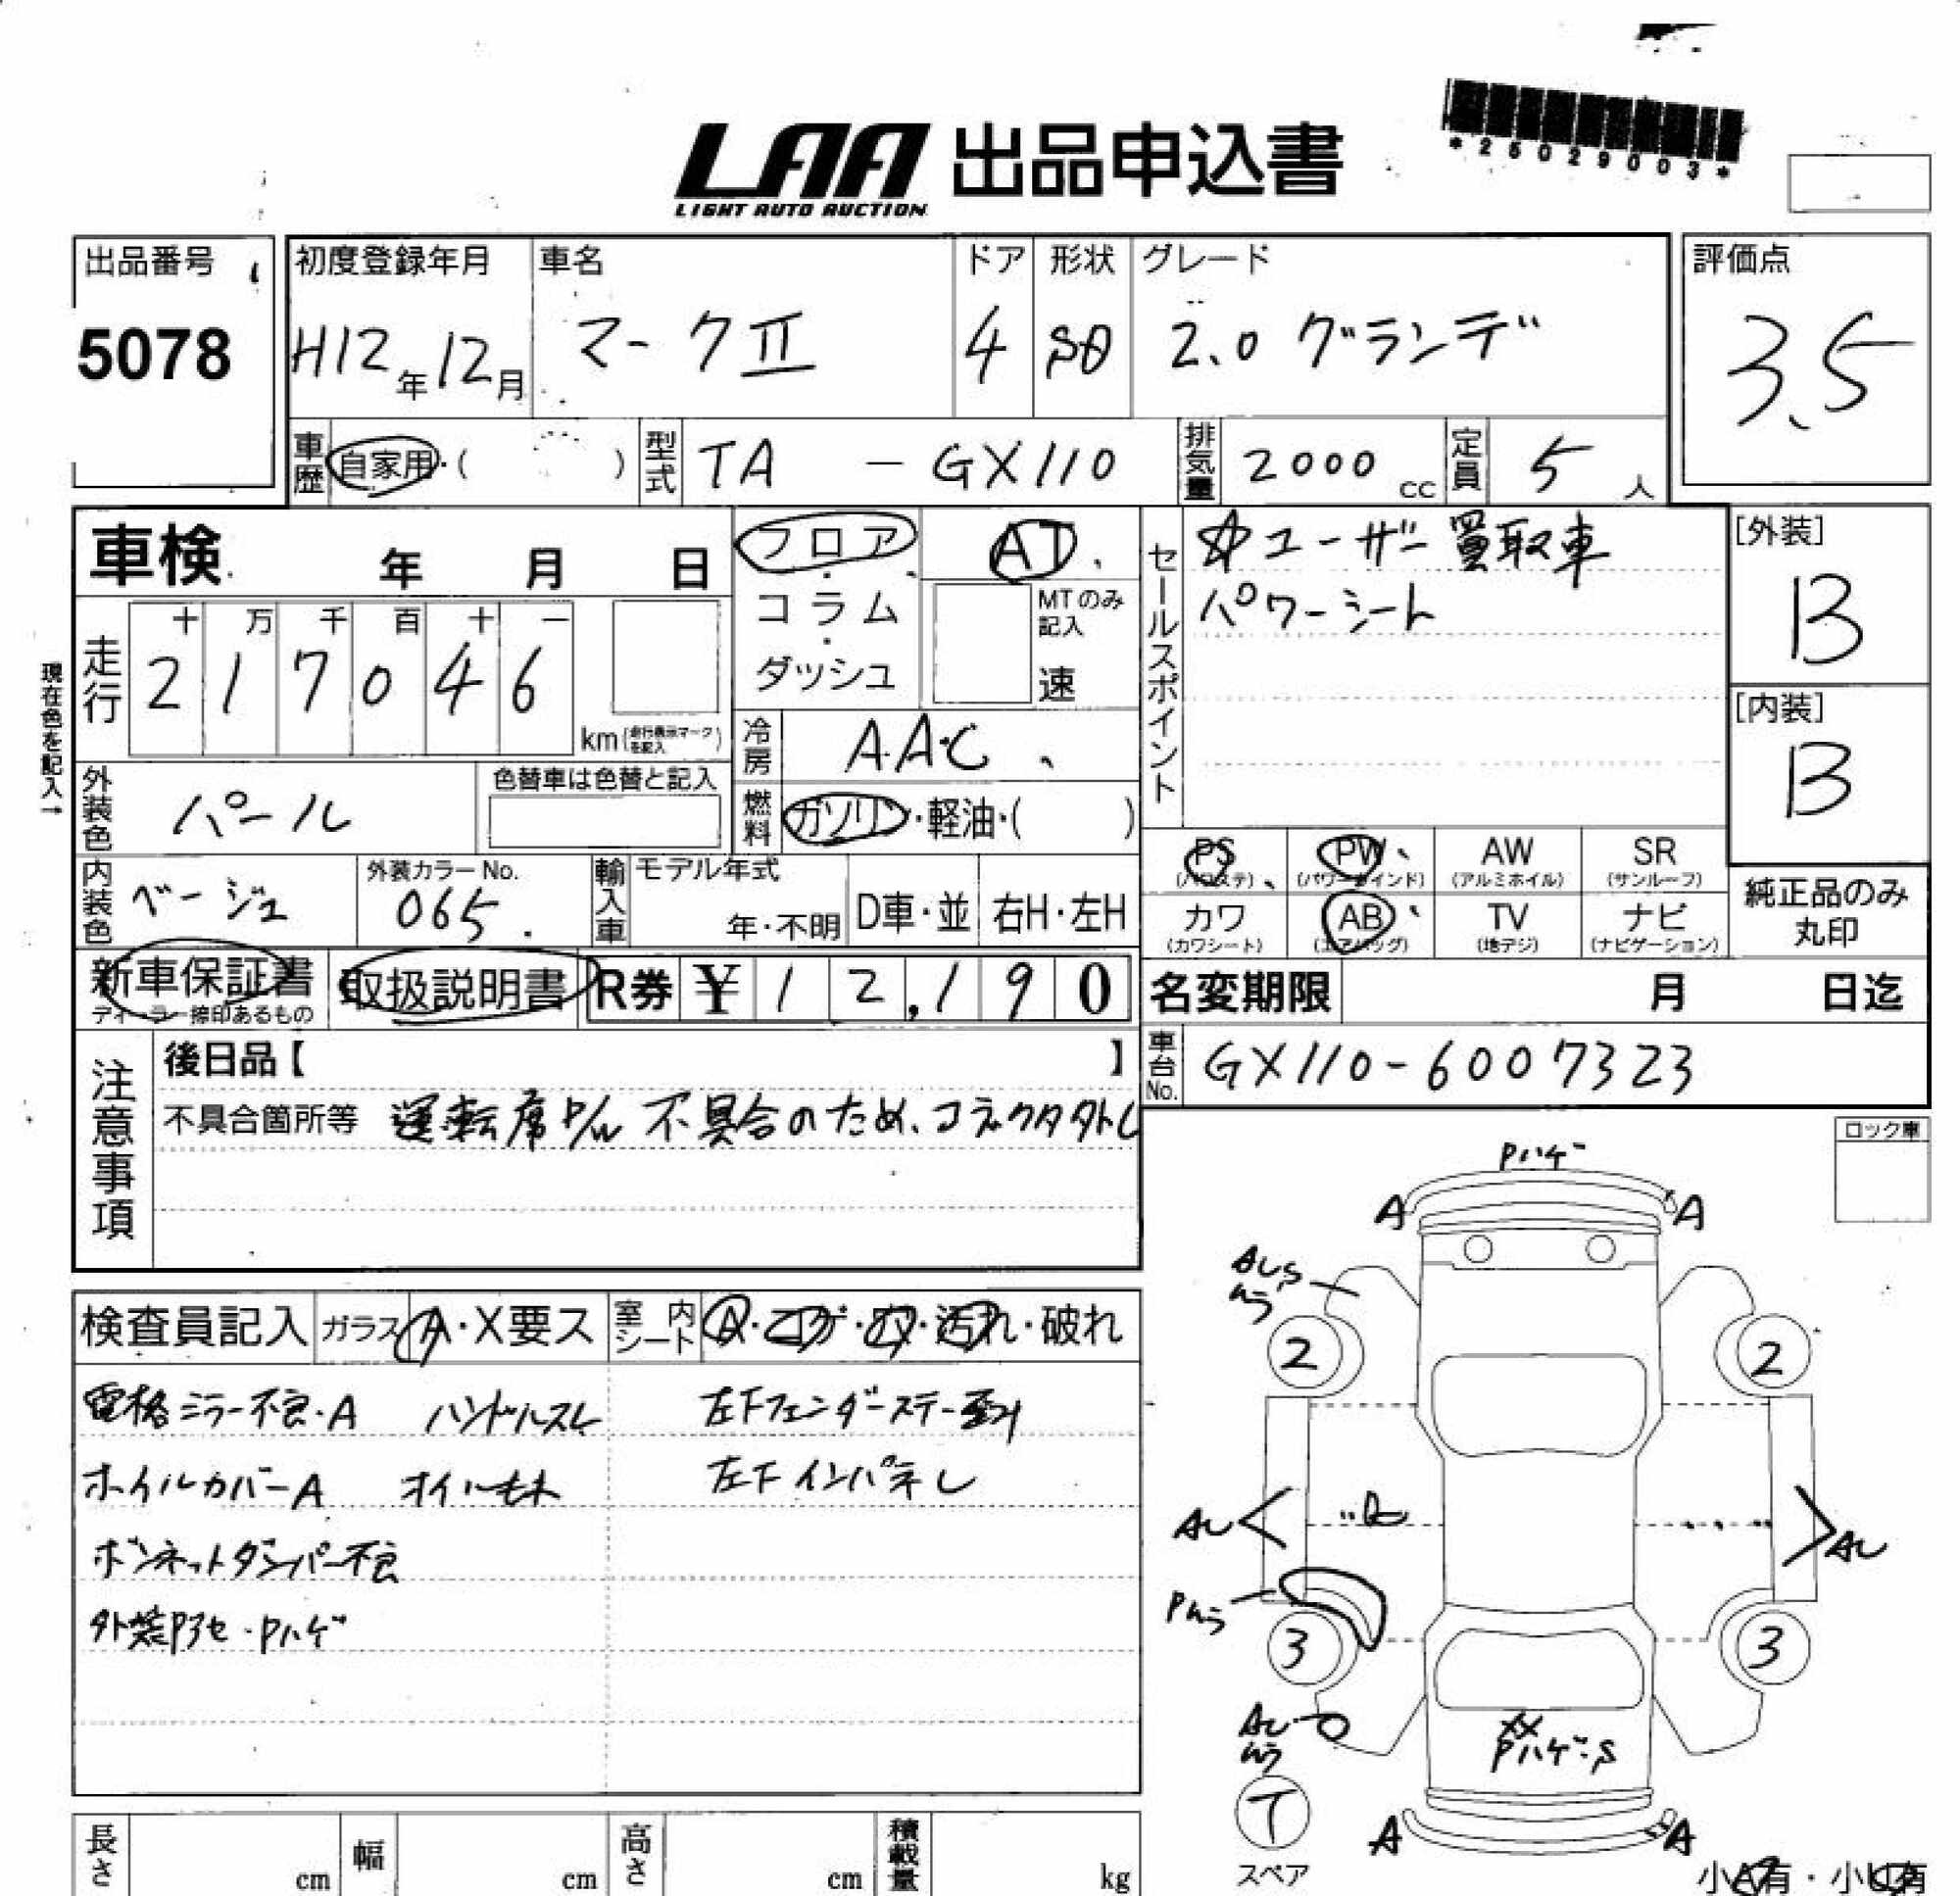 LAA 出品申込書
LIGHT AUTO AUCTION
*25029003*
出品番号
5078
初度登録年月
H12年12月
車名
マークⅡ
ドア
4
形状
SD
グレード
2.0 グランデ
評価点
3.5
車歴
自家用・( )
型式
TA - GX110
排気量
2000 cc
定員
5 人
車検 年 月 日
フロア
コラム
ダッシュ
AT
MTのみ記入
速
セールスポイント
☆ユーザー買取車
パワーシート
[外装]
B
[内装]
B
現在色を記入→
走行
十 万 千 百 十 一
2 1 7 0 4 6
km(走行表示マークを記入)
冷房
AAC
外装色
パール
色替車は色替と記入
燃料
ガソリン・軽油・( )
PS
(パワステ)
PW
(パワーウインド)
AW
(アルミホイル)
SR
(サンルーフ)
カワ
(カワシート)
AB
(エアバッグ)
TV
(地デジ)
ナビ
(ナビゲーション)
純正品のみ
丸印
内装色
ベージュ
外装カラーNo.
065
輸入車
モデル年式
年・不明
D車・並
右H・左H
新車保証書
ディーラー捺印あるもの
取扱説明書
R券 ¥ 12,190
名変期限 月 日迄
車台No.
GX110-6007323
注意事項
後日品【 】
不具合箇所等 運転席P/W不具合のため、コネクタ外し
ロック車
検査員記入
ガラス A・X要ス
室内シート
A・コゲ・穴・汚れ・破れ
電格ミラー不良・A ハンドルスレ 左Fフェンダーステー歪み
ホイルカバーA オイルモレ 左Fインパネし
ボンネットダンパー不良
外装Pヤセ・Pハゲ
Pハゲ
A A
AUS
ムラ
2 2
AU
AU
Pムラ
3 3
AU
ムラ
XX
Pハゲ・S
T
スペア
A A
長さ cm
幅 cm
高さ cm
積載量 kg
小A有・小U有